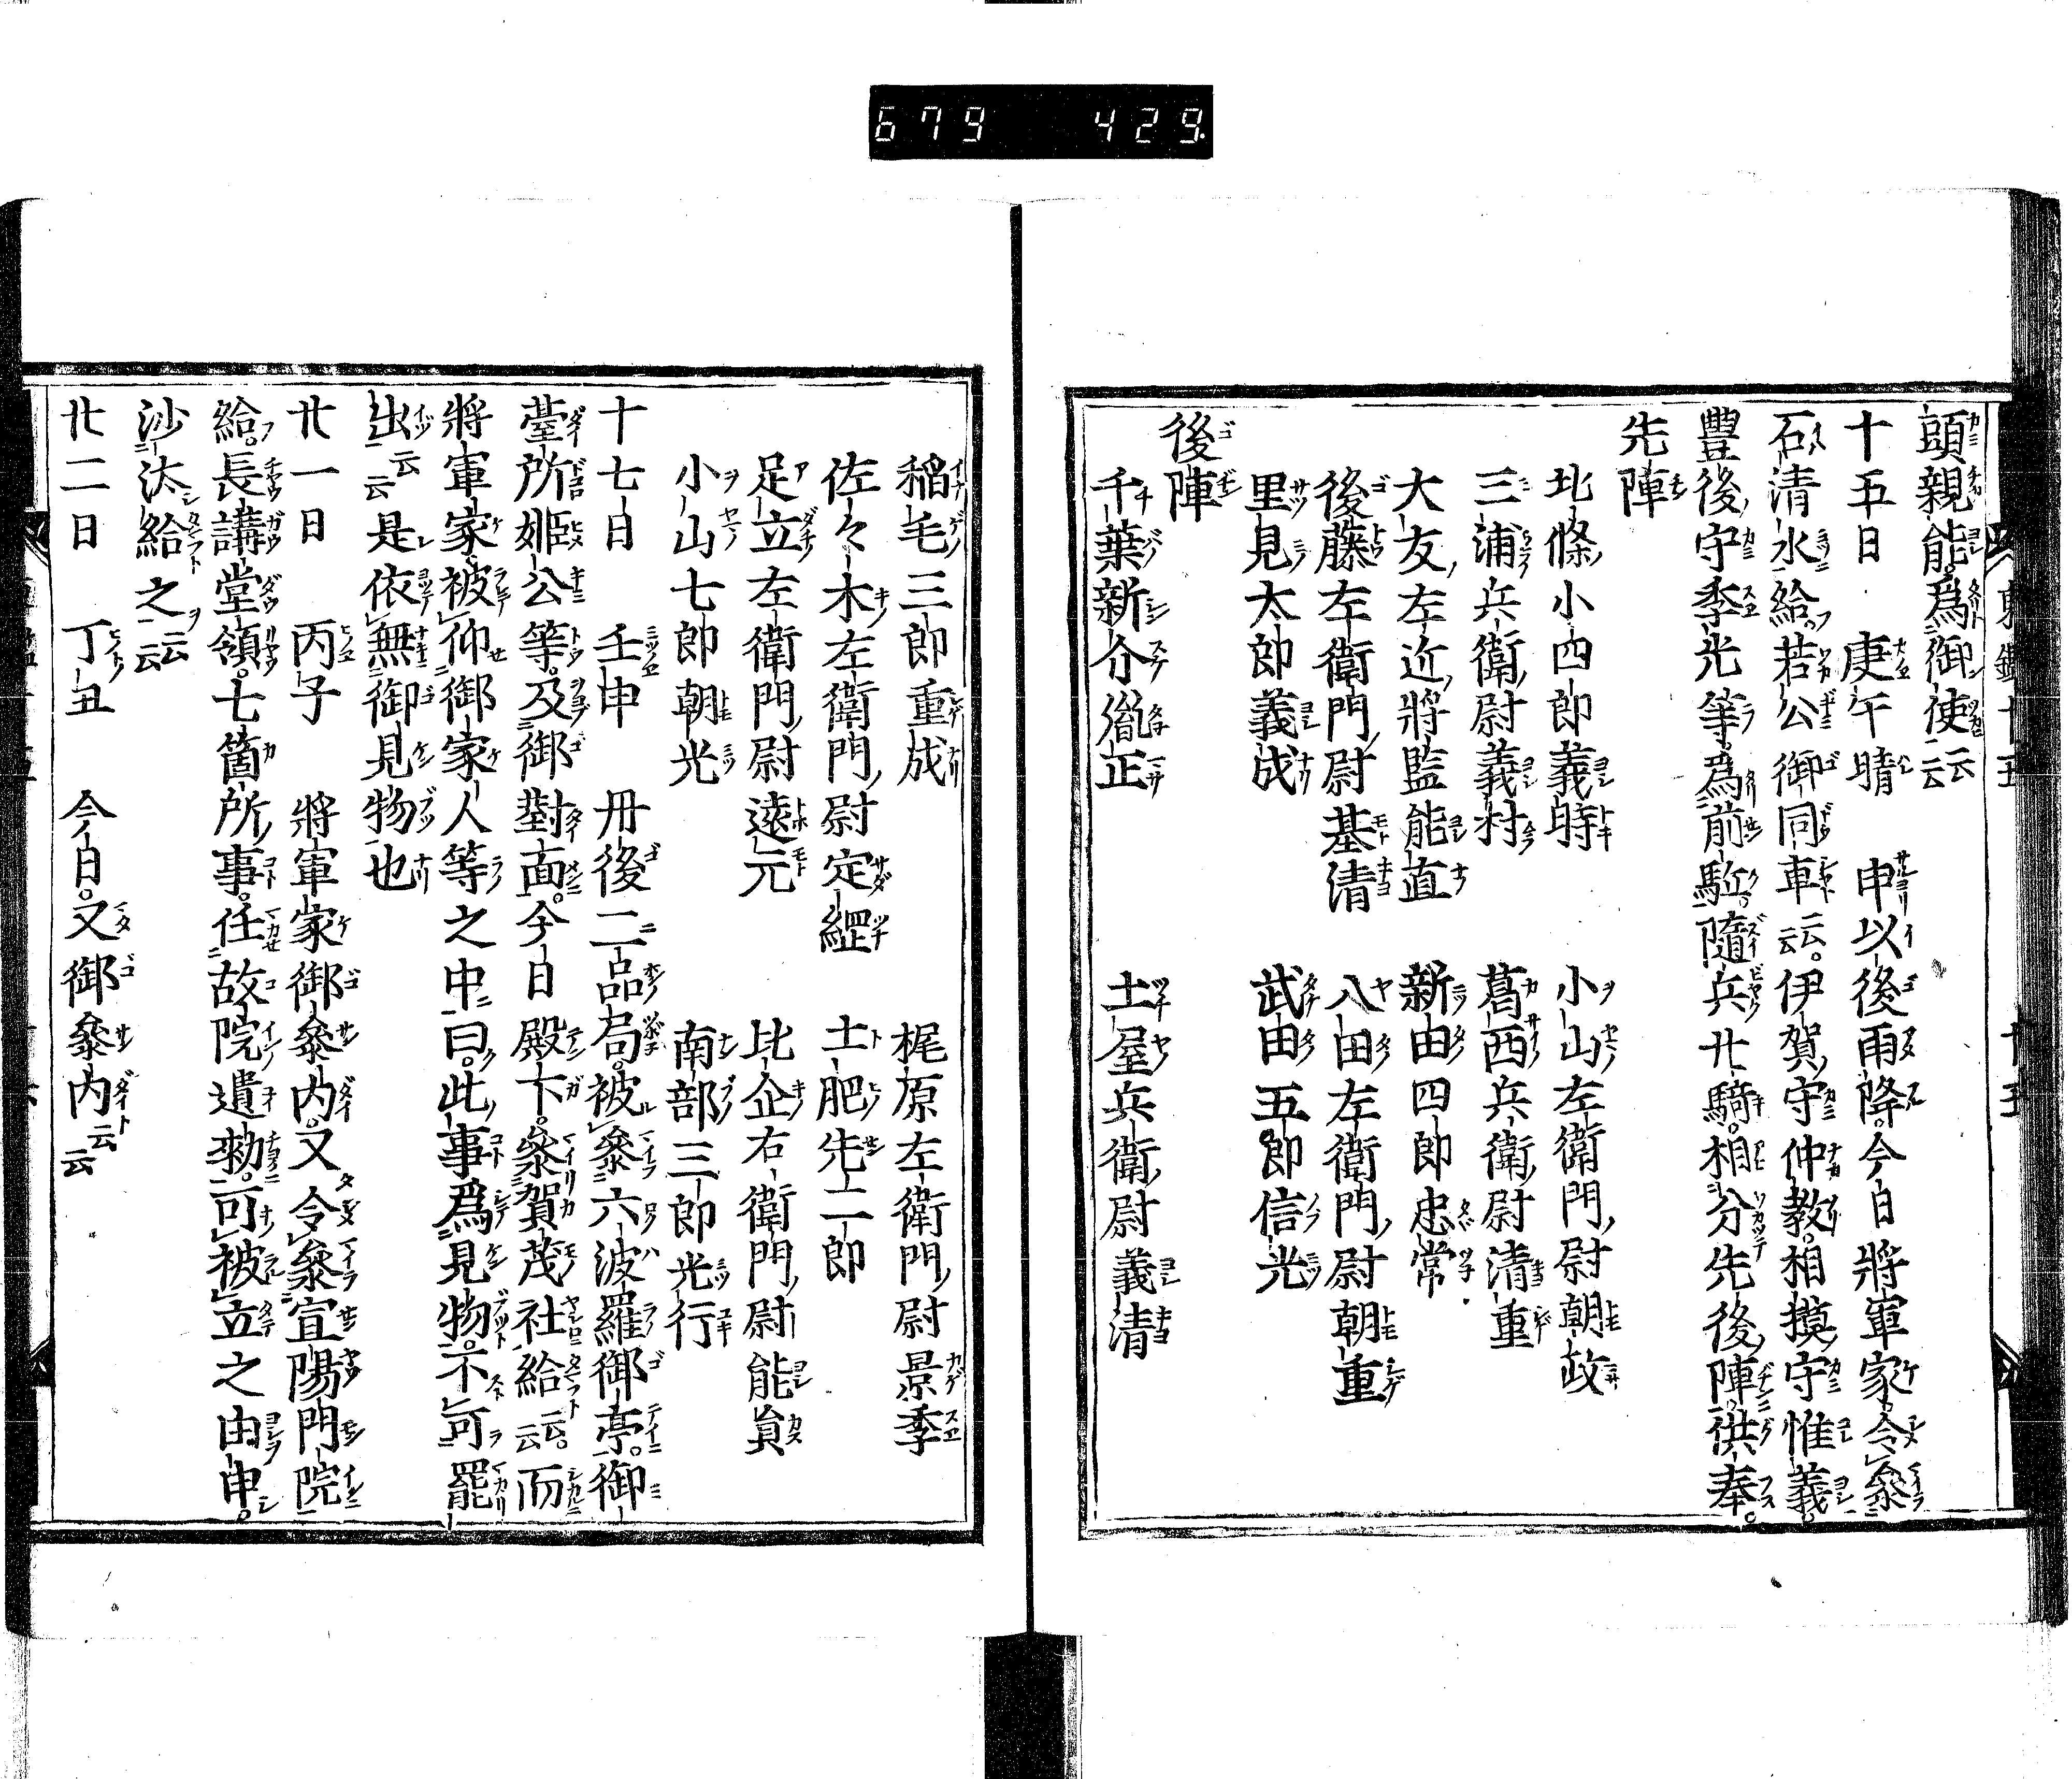 679 429.
頭親能爲御使云云
十五日 庚午晴 申以後雨降今日將軍家令參
石清水給若公御同車云云伊賀守仲教相摸守惟義
豐後守季光等爲前駈隨兵廿騎相分先後陣供奉
先陣
北條小四郎義時 小山左衛門尉朝政
三浦兵衛尉義村 葛西兵衛尉清重
大友左近將監能直 新田四郎忠常
後藤左衛門尉基清 八田左衛門尉朝重
里見太郎義成 武田五郎信光
後陣
千葉新介胤正 土屋兵衛尉義清
稲毛三郎重成 梶原左衛門尉景季
佐々木左衛門尉定綱 土肥先二郎
足立左衛門尉遠元 比企右衛門尉能員
小山七郎朝光 南部三郎光行
十七日 壬申 丹後二品局被參六波羅御亭御
臺所姫公等及御對面今日殿下參賀茂社給云云而
將軍家被仰御家人等之中曰此事爲見物不可罷
出云云是依無御見物也
廿一日 丙子 將軍家御參内又令參宣陽門院
給長講堂領七箇所事任故院遺勅可被立之由申
沙汰給之云云
廿二日 丁丑 今日又御參内云云